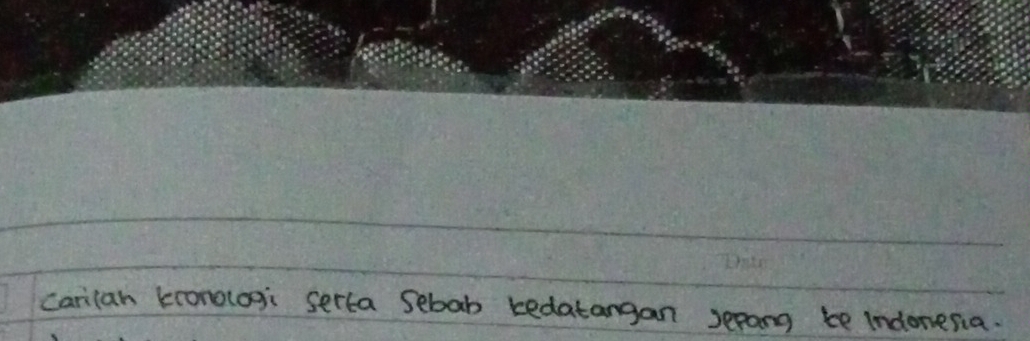 Date
Carilah kronologi serta sebab kedatangan Jepang ke Indonesia.